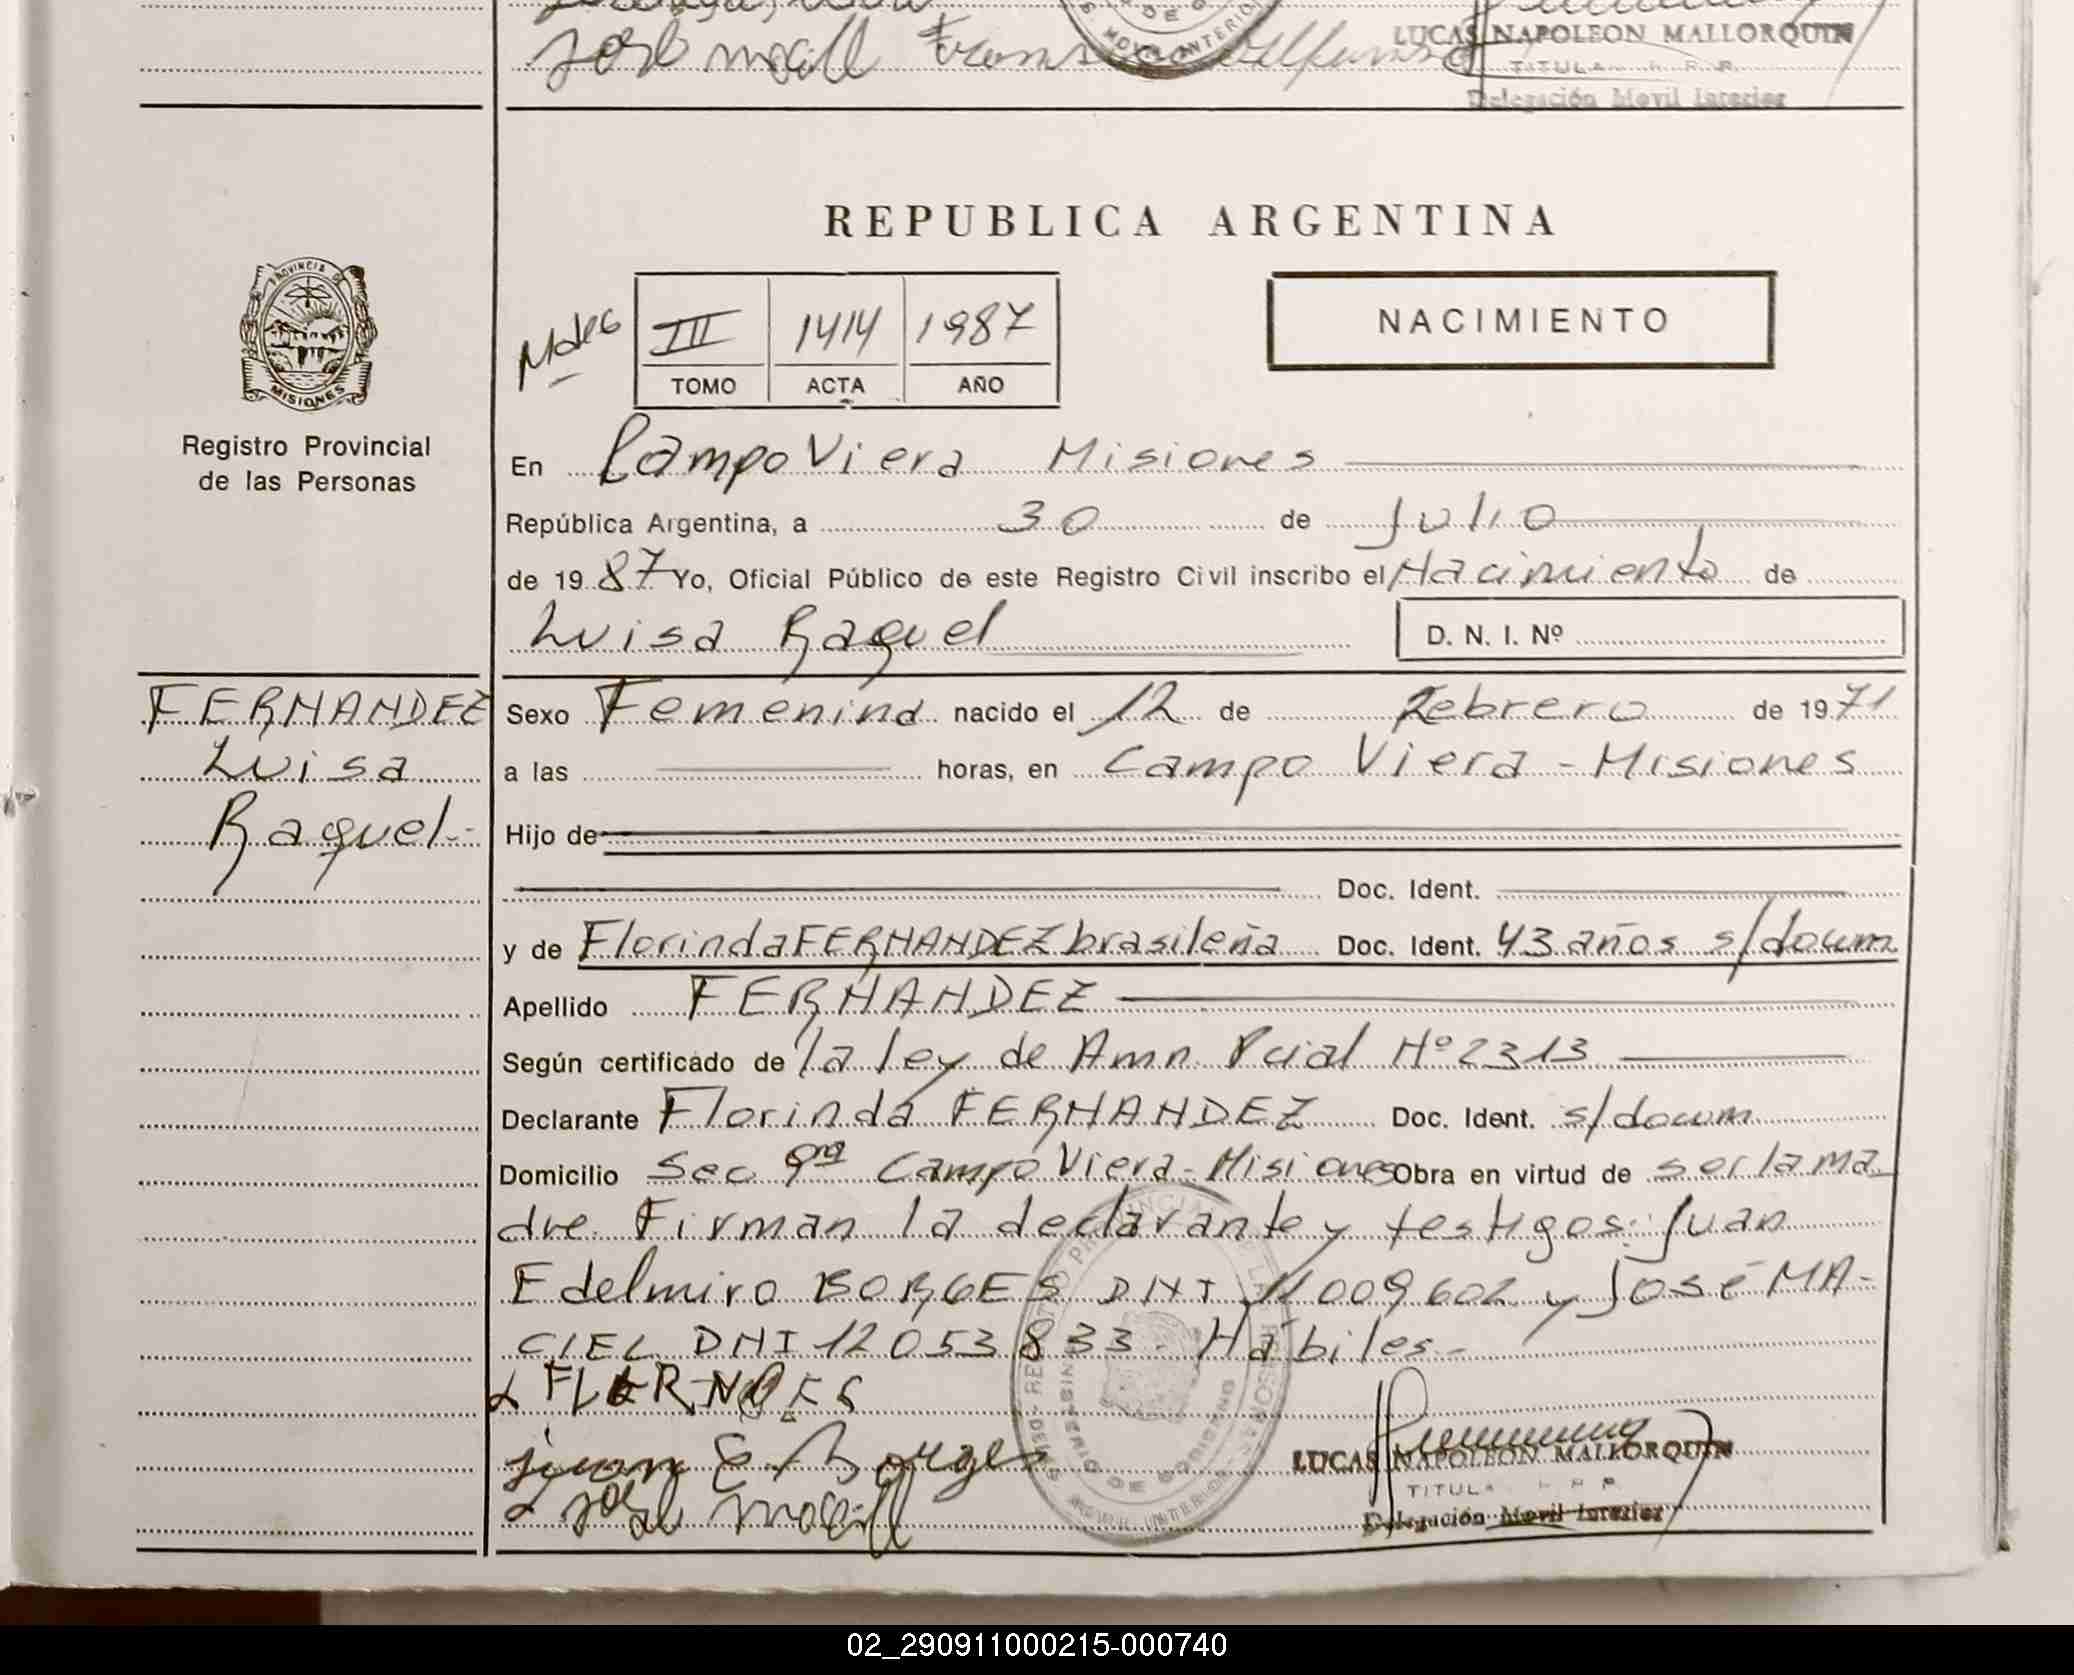 José
DE
MOVIL INTERIOR
LUCAS NAPOLEON MALLORQUIN
TITULA R.P.P.
Delegación Movil Interior
REPUBLICA ARGENTINA
PROVINCIA DE
MISIONES
III 1414 1987
TOMO ACTA AÑO
NACIMIENTO
Registro Provincial
de las Personas
En Campo Viera Misiones
República Argentina, a 30 de Julio
de 1987 Yo, Oficial Público de este Registro Civil inscribo el Nacimiento de
Luisa Raquel
D. N. I. Nº
FERNANDEZ
Luisa
Raquel.-
Sexo Femenino nacido el 12 de Febrero de 1971
a las horas, en Campo Viera - Misiones
Hijo de
Doc. Ident.
y de Florinda FERNANDEZ brasileña Doc. Ident. 43 años s/docum
Apellido FERNANDEZ
Según certificado de la ley de Amn. Pcial Nº 2313
Declarante Florinda FERNANDEZ Doc. Ident. s/docum
Domicilio Sec 9na Campo Viera - Misiones Obra en virtud de ser la ma
dre. Firman la declarante y testigos: Juan
Edelmiro BORGES DNI 11009602 y José MA-
CIEL DNI 12053833. Hábiles.-
juan E. Borges
LUCAS NAPOLEON MALLORQUIN
TITULA R.P.P.
Delegación Movil Interior
02_290911000215-000740